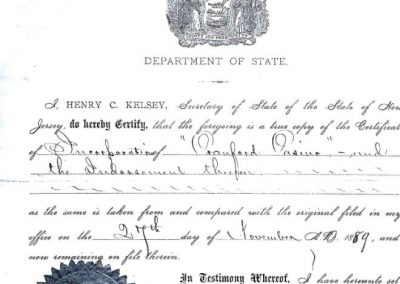 DEPARTMENT OF STATE.
I, HENRY C. KELSEY, Secretary of State of the State of New
Jersey, do hereby Certify, that the foregoing is a true copy of the Certificat
of Incorporation of "Cranford Casino" - and
the Indorsement thereon
as the same is taken from and compared with the original filed in my
office on the 27th day of November A.D. 1889, and
now remaining on file therein.
In Testimony Whereof, I have hereunto set